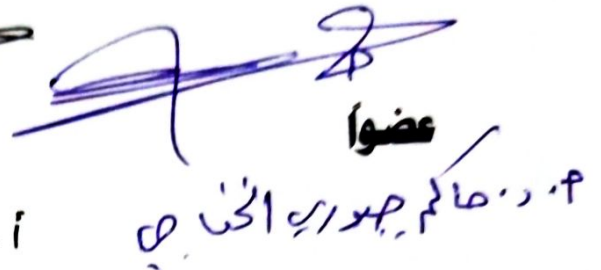 عضواً
م. د. حاكم جبوري الخفاجي
أ